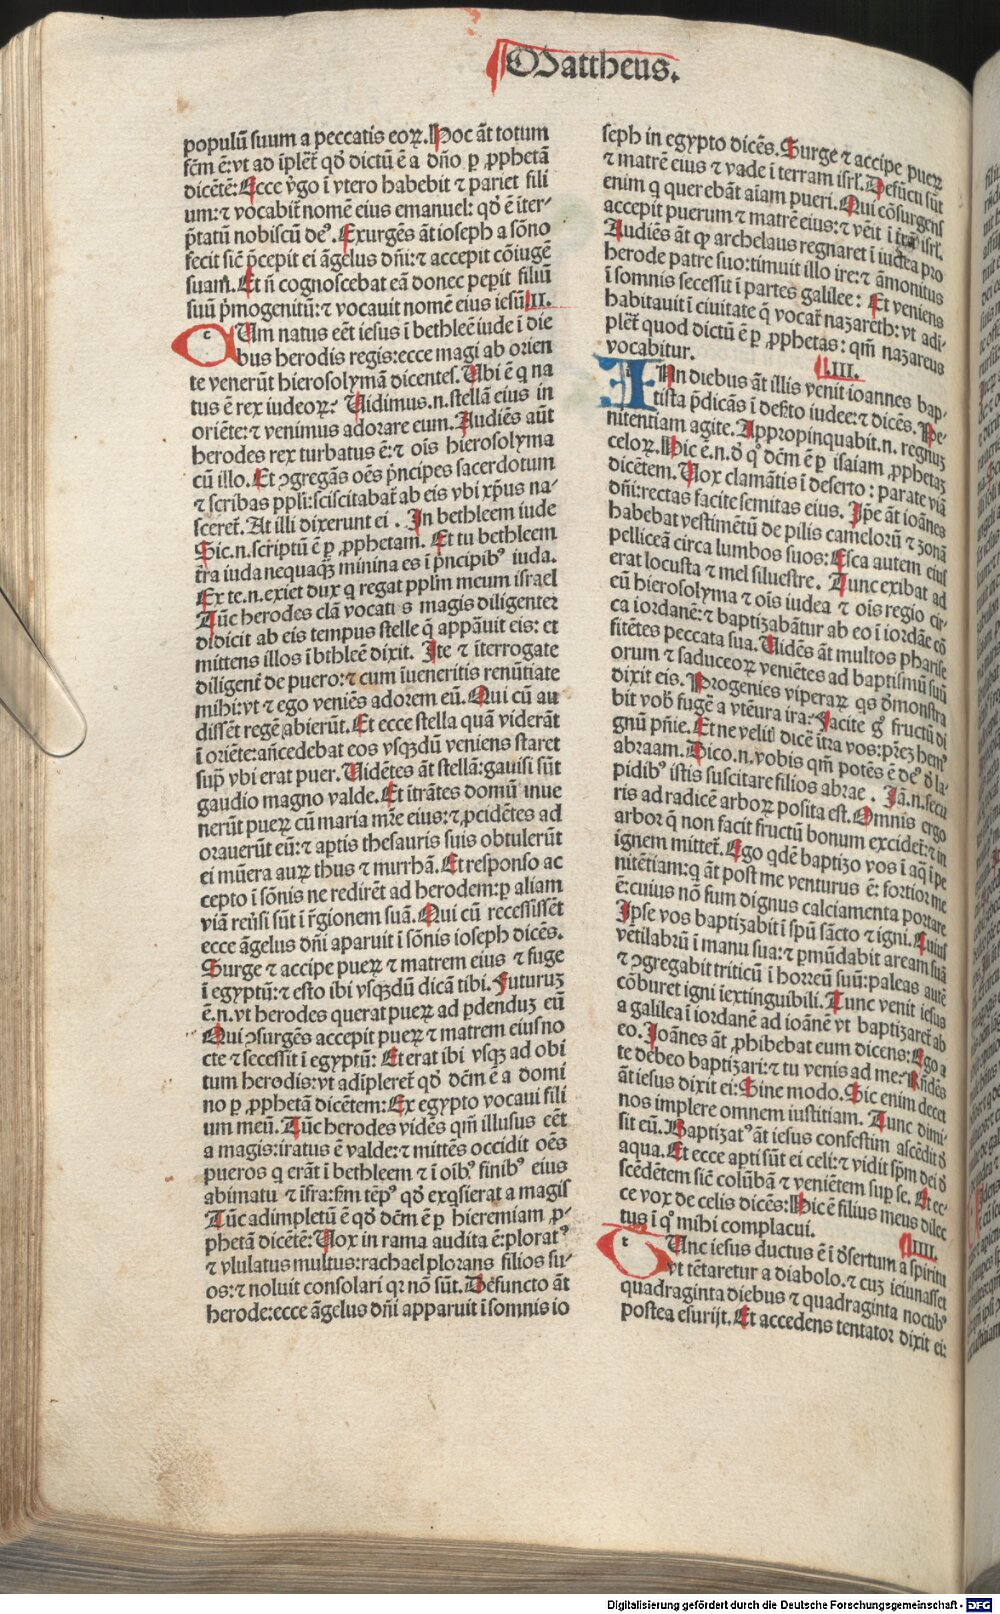 Mattheus.
populū suum a peccatis eoꝝ. Hoc āt totum
fc̄m ē: vt ad īplēt̄ qd̓ dictū ē a dn̄o ꝑ ꝓphetā
dicētē: Ecce v̓go ī vtero habebit ⁊ pariet fili
um: ⁊ vocabit̄ nomē eius emanuel: qd̓ ē iter-
p̄tatū nobiscū deꝰ. Exurgēs āt ioseph a sōno
fecit sic̄ p̄cepit ei āgelus dn̄i: ⁊ accepit cōiugē
suam. Et n̄ cognoscebat eā donec peperit filiū
suū p̓mogenitū: ⁊ vocauit nomē eius iesū II.
c Um natus eēt iesus ī bethleē iude ī die
bus herodis regis: ecce magi ab orien
te venerūt hierosolymā dicentes. Ubi ē q na
tus ē rex iudeoꝝ? Uidimus .n. stellā eius in
oriēte: ⁊ venimus adorare eum. Audiēs aūt
herodes rex turbatus ē: ⁊ ois̄ hierosolyma
cū illo. Et ꝯgregās oēs p̓ncipes sacerdotum
⁊ scribas pp̄li: sciscitabat̄ ab eis vbi xp̄us na-
sceret̄. At illi dixerunt ei. In bethleem iude
Sic .n. scriptū ē ꝑ ꝓphetam. Et tu bethleem
tr̄a iuda nequaqꝫ minina es ī p̓ncipibꝰ iuda.
Ex te .n. exiet dux q regat pp̄lm meum israel
Tūc herodes clā vocati s magis diligenter
didicit ab eis tempus stelle q̄ appāuit eis: et
mittens illos ī bthleē dixit. Ite ⁊ īterrogate
diligent̄ de puero: ⁊ cum īueneritis renūtiate
mihi: vt ⁊ ego veniēs adorem eū. Qui cū au
dissēt regē abierūt. Et ecce stella quā viderāt
ī oriēte: an̄cedebat eos vsqꝫdū veniens staret
sup̄ vbi erat puer. Uidētes āt stellā: gauisi sūt
gaudio magno valde. Et ītrātes domū inue
nerūt pueꝝ cū maria mr̄e eius: ⁊ ꝓcidētes ad
orauerūt eū: ⁊ aꝑtis thesauris suis obtulerūt
ei mūera auꝝ thus ⁊ murrhā. Et responso ac
cepto ī sōnis ne redirēt ad herodem: ꝑ aliam
viā reu̓si sūt ī r̓gionem suā. Qui cū recessissēt
ecce āgelus dn̄i aparuit ī sōnis ioseph dicēs.
Surge ⁊ accipe pueꝝ ⁊ matrem eius ⁊ fuge
ī egyptū: ⁊ esto ibi vsqꝫdū dicā tibi. Futuruꝫ
ē .n. vt herodes querat pueꝝ ad ꝑdenduꝫ eū
Qui ꝯsurgēs accepit pueꝝ ⁊ matrem eius no
cte ⁊ secessit ī egyptū: Et erat ibi vsqꝫ ad obi
tum herodis: vt adīpleret̄ qd̓ dc̄m ē a domi
no ꝑ ꝓphetā dicētem: Ex egypto vocaui fili
um meū. Tūc herodes vidēs qm̄ illusus eēt
a magis: iratus ē valde: ⁊ mittēs occidit oēs
pueros q erāt ī bethleem ⁊ ī oībꝰ finibꝰ eius
abimatu ⁊ īfra: scd̄m tēpꝰ qd̓ exqsierat a magis
Tūc adimpletū ē qd̓ dc̄m ē ꝑ hieremiam ꝓ-
phetā dicētē: Uox in rama audita ē: ploratꝰ
⁊ vlulatus multus: rachael plorans filios su-
os: ⁊ noluit consolari qr nō sūt. Defuncto āt
herode: ecce āgelus dn̄i apparuit ī somnis io
seph in egypto dicēs. Surge ⁊ accipe pueꝝ
⁊ matrē eius ⁊ vade ī terram isrl̄. Defūcti sūt
enim q querebāt aīam pueri. Qui cōsurgens
accepit puerum ⁊ matrē eius: ⁊ vēit ī trā isrl̄.
Audiēs āt qꝫ archelaus regnaret ī iudea pro
herode patre suo: timuit illo ire: ⁊ āmonitus
ī somnis secessit ī partes galilee: Et veniens
habitauit ī ciuitate q̄ vocat̄ nazareth: vt adi-
plēt̄ quod dictū ē ꝑ ꝓphetas: qm̄ nazareus
vocabitur. III.
I N diebus āt illis venit ioannes bap-
tista p̄dicās ī deser̄to iudee: ⁊ dicēs. Pe-
nitentiam agite. Appropinquabit .n. regnuꝫ
celoꝝ. Hic ē .n. d̓ qͦ dc̄m ē ꝑ isaiam ꝓphetaꝫ
dicētem. Uox clamātis ī deserto: parate viā
dn̄i: rectas facite semitas eius. Ip̄e āt ioānes
habebat vestimētū de pilis cameloꝝ ⁊ zonā
pelliceā circa lumbos suos: Esca autem eius
erat locusta ⁊ mel siluestre. Tunc exibat ad
eū hierosolyma ⁊ ois̄ iudea ⁊ ois̄ regio cir-
ca iordanē: ⁊ baptizabātur ab eo ī iordāe cō
fitētes peccata sua. Uidēs āt multos pharise
orum ⁊ saduceoꝝ veniētes ad baptismū suū
dixit eis. Progenies viperaꝝ qs d̓monstra
bit vob̓ fugē a vtēura ira: Facite gͦ fructū di
gnū pn̄ie. Et ne velit̓ dicē ītra vos: pr̄eꝫ hemꝰ
abraam. Dico .n. vobis qm̄ potēs ē deꝰ d̓ la-
pidibꝰ istis suscitare filios abrae. Iā .n. secu
ris ad radicē arboꝝ posita est. Omnis ergo
arbor q̄ non facit fructū bonum excidet̄: ⁊ in
ignem mittet̄. Ego qdē baptizo vos ī aq̄ ī pe
nitētiam: q āt post me venturus ē: fortior me
ē: cuius nō sum dignus calciamenta portare
Ipse vos baptizabit ī spū sācto ⁊ igni. Cuius
vētilabrū ī manu sua: ⁊ ꝑmūdabit aream suā
⁊ ꝯgregabit triticū ī horreū suū: paleas autē
cōburet igni īextinguibili. Tunc venit iesus
a galilea ī iordanē ad ioānē vt baptizaret̄ ab
eo. Ioānes āt ꝓhibebat eum dicens: Ego a
te debeo baptizari: ⁊ tu venis ad me: Rn̄dēs
āt iesus dixit ei: Sine modo. Sic enim decet
nos implere omnem iustitiam. Tunc dimi-
sit eū. Baptizatꝰ āt iesus confestim ascēdit d̓
aqua. Et ecce aꝑti sūt ei celi: ⁊ vidit spm̄ dei d̓
scēdētem sic̄ colūbā ⁊ veniētem suꝑ se. Et ec-
ce vox de celis dicēs: Hic ē filius meus dilec
tus ī qͦ mihi complacui. IIII.
t Unc iesus ductus ē ī d̓sertum a spiritu
vt tētaretur a diabolo. ⁊ cuꝫ ieiunasset
quadraginta diebus ⁊ quadraginta noctibꝰ
postea esurijt. Et accedens tentator dixit ei:
Digitalisierung gefördert durch die Deutsche Forschungsgemeinschaft - DFG